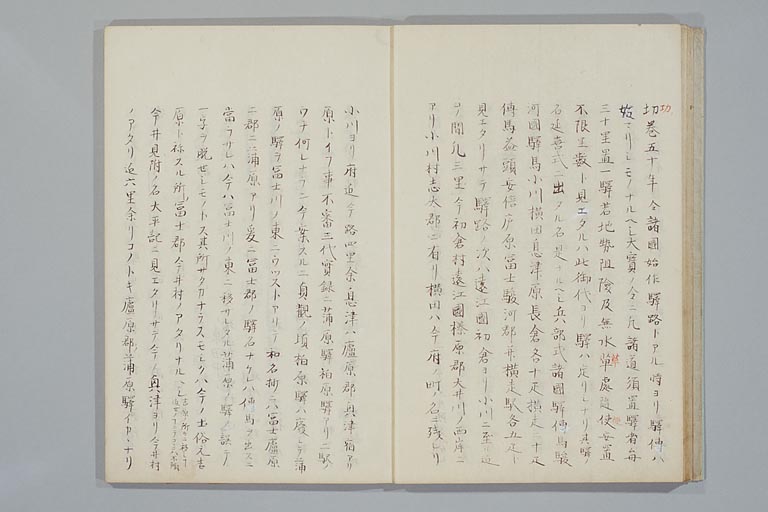 功
切卷五十年令諸國始作驛路トアル時ヨリ驛傳ハ
始マリシモノナルヘシ大寳ノ令ニ凡諸道須置驛者每
三十里置一驛若地勢阻險及無水草處隨使安置
不限里數ト見エタルハ此御代ヨリ驛ハ定リシナリ其驛
名延喜式ニ出タル名是ナルヘシ兵部式諸國驛傳馬駿
河國驛馬小川橫田息津蒲原長倉各十疋橫走二十疋
傳馬益頭安倍庐原冨士駿河郡并橫走駅各五疋ト
見エタリサテ驛路ノ次ハ遠江國初倉ヨリ小川ニ至ル迠
ノ間凡三里今初倉村遠江國榛原郡大井川ノ西岸ニ
アリ小川村志太郡ニ有リ橫田ハ今府ノ町ノ名ニ残レリ
小川ヨリ府迠今路四里余息津ハ廬原郡興津宿アリ
原トイフ事不審三代實録ニ蒲原驛柏原驛アリ二駅ノ
ウチ何レナラン今案スルニ貞觀ノ頃柏原驛ハ廢シテ蒲
原ノ驛ヲ冨士川ノ東ニウツストアリテ和名抄ニハ冨士廬原
二郡ニ蒲原アリ爰ニ冨士郡ノ驛名ナケレハ傳馬ヲ出スニ
當フサレハ今ハ冨士川ノ東ニ移サレタル蒲原ノ驛ノ誤ニテ
一字ヲ脱セシモノトス其所サタカナラスモシクハ今ノ土俗元吉
原ト称スル所冨士郡今井村ノアタリナルヘシ
今井見附ノ名太平記ニ見エタリサテ今ノ興津ヨリ今井村
ノアタリ迠六里余リコノトキ廬原郡ノ蒲原驛イカヽナリ